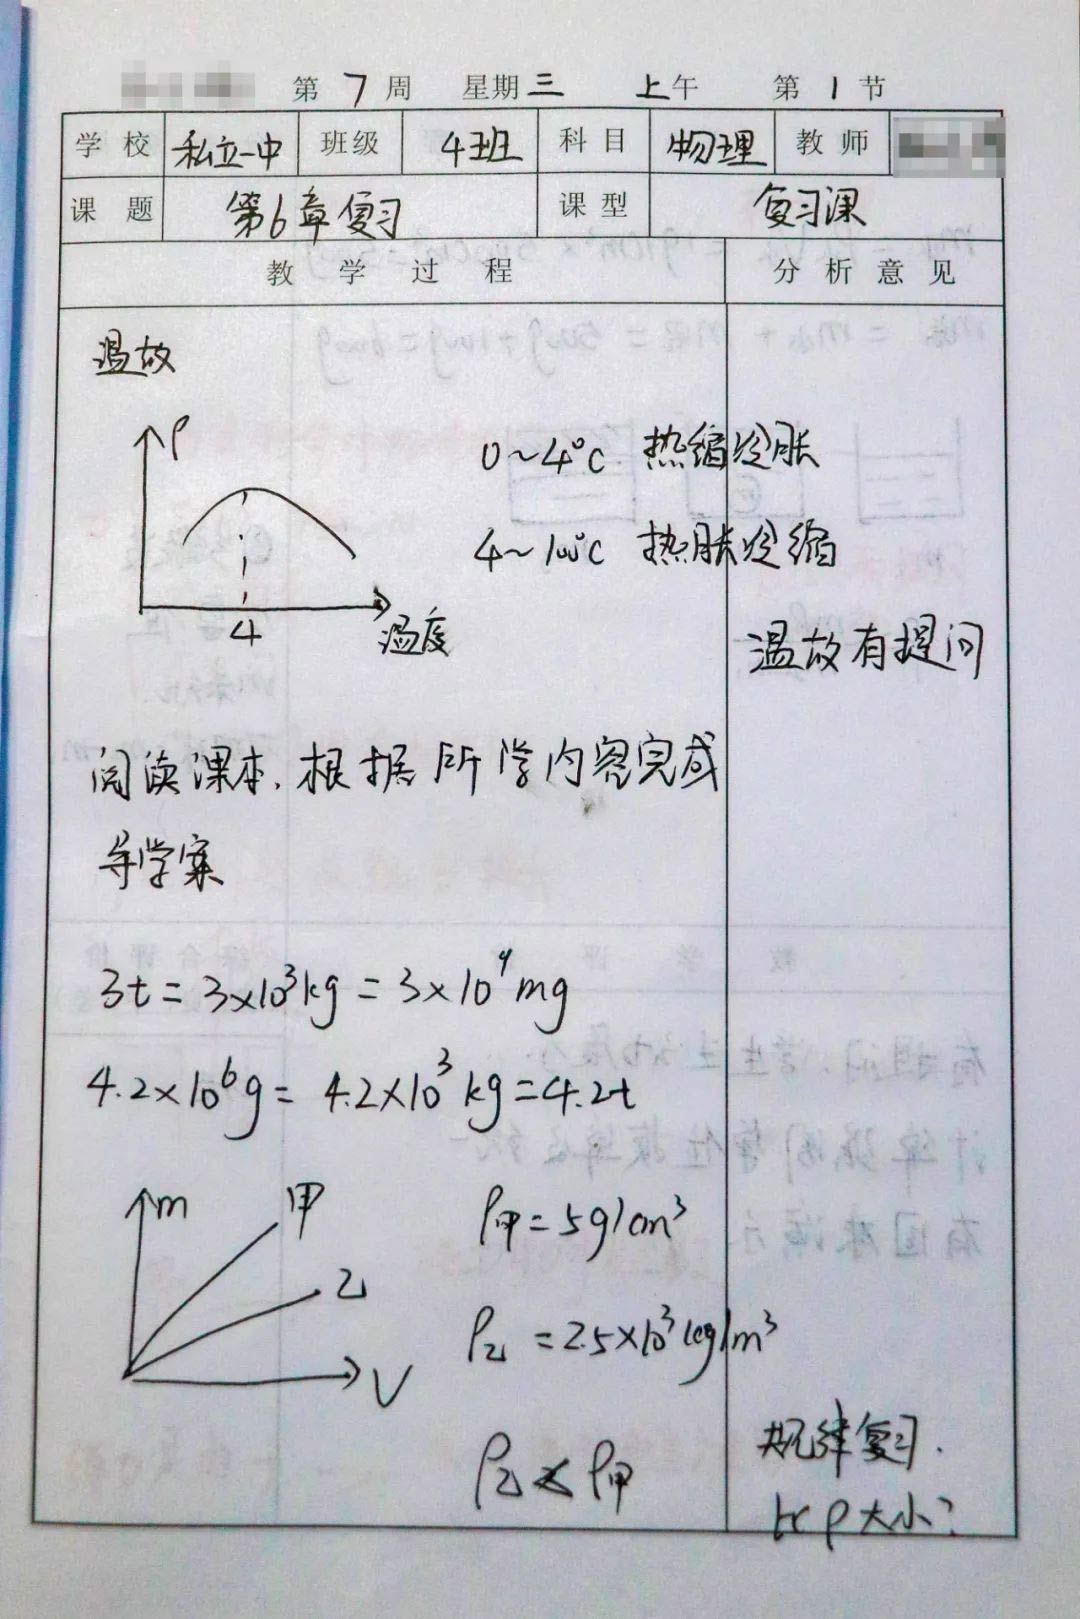 第7周 星期三 上午 第1节
学校 私立一中 班级 4班 科目 物理 教师
课题 第6章复习 课型 复习课
教学过程 分析意见
温故
ρ
0~4℃ 热缩冷胀
4~100℃ 热胀冷缩
4 温度
温故有提问
阅读课本,根据所学内容完成
导学案
3t=3×10³kg=3×10⁹mg
4.2×10⁶g=4.2×10³kg=4.2t
m 甲
ρ甲=5g/cm³
乙
ρ乙=2.5×10³kg/m³
V
规律复习.
ρ乙<ρ甲
比ρ大小?